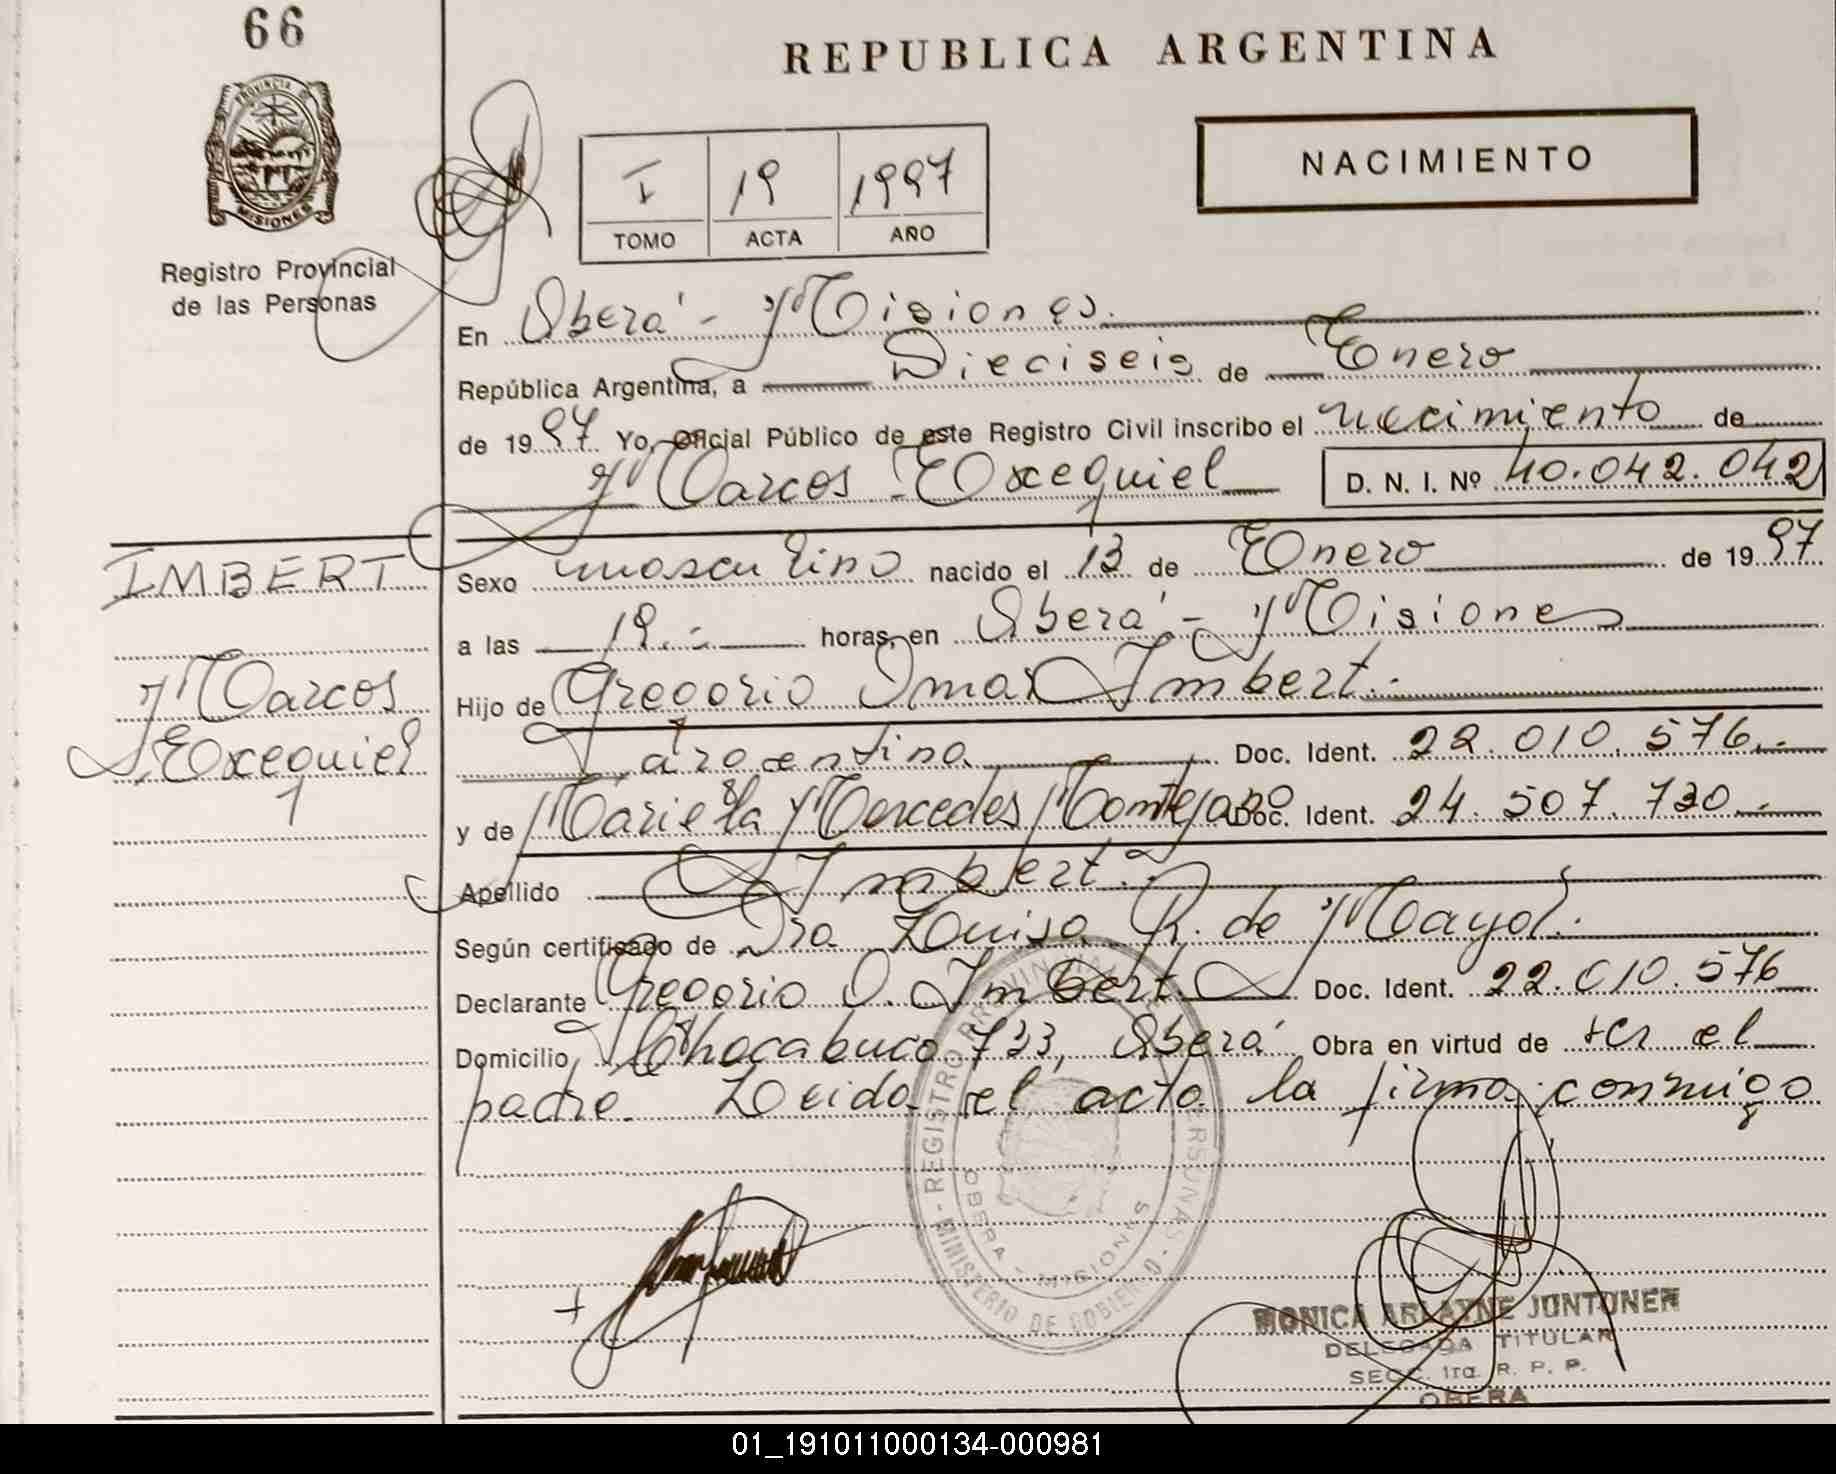 66
REPUBLICA ARGENTINA
PROVINCIA D
MISIONES
Registro Provincial
de las Personas
I 19 1997
TOMO ACTA AÑO
NACIMIENTO
En Oberá - Misiones.
República Argentina, a Dieciseis de Enero
de 1997 Yo, Oficial Público de este Registro Civil inscribo el nacimiento de
Marcos Exequiel D. N. I. Nº 40.042.042
IMBERT
Marcos
Exequiel
Sexo masculino nacido el 13 de Enero de 1997
a las 19.- horas, en Oberá - Misiones
Hijo de Gregorio Omar Imbert.-
Argentino Doc. Ident. 22.010.576.-
y de Mariela Mercedes Montejano Doc. Ident. 24.507.720.-
Apellido Imbert.-
Según certificado de Dra. Luisa R. de Mayol.
Declarante Gregorio O. Imbert Doc. Ident. 22.010.576
Domicilio Chacabuco 733, Oberá Obra en virtud de ser el
padre. Leida el acta la firma conmigo
REGISTRO PROVINCIAL PERSONAS - MINISTERIO DE GOBIERNO -
OBERA - MISIONES
MONICA ARLAYNE JUNTUNEN
DELEGADA TITULAR
SECC. 1ra. R. P. P.
OBERA
01_191011000134-000981